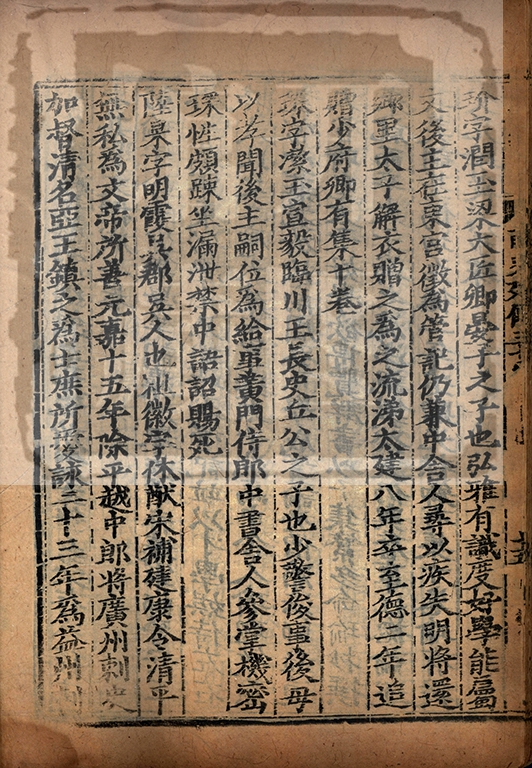 玠字潤玉梁大匠卿晏子之子也弘雅有識度好學能屬
文後主在東宮徵為管記仍兼中舍人尋以疾失明將還
鄉里太子解衣贈之為之流涕太建八年卒至德二年追
贈少府卿有集十卷
琛字潔玉宣毅臨川王長史丘公之子也少警俊事後母
以孝聞後主嗣位為給事黃門侍郎中書舍人參掌機密
琛性頗疎坐漏泄禁中語詔賜死
陸杲字明霞吳郡吳人也祖徽字休猷宋補建康令清平
無私為文帝所善元嘉十五年除平越中郎將廣州刺史
加督清名亞王鎮之為士庶所愛詠二十三年為益州刺